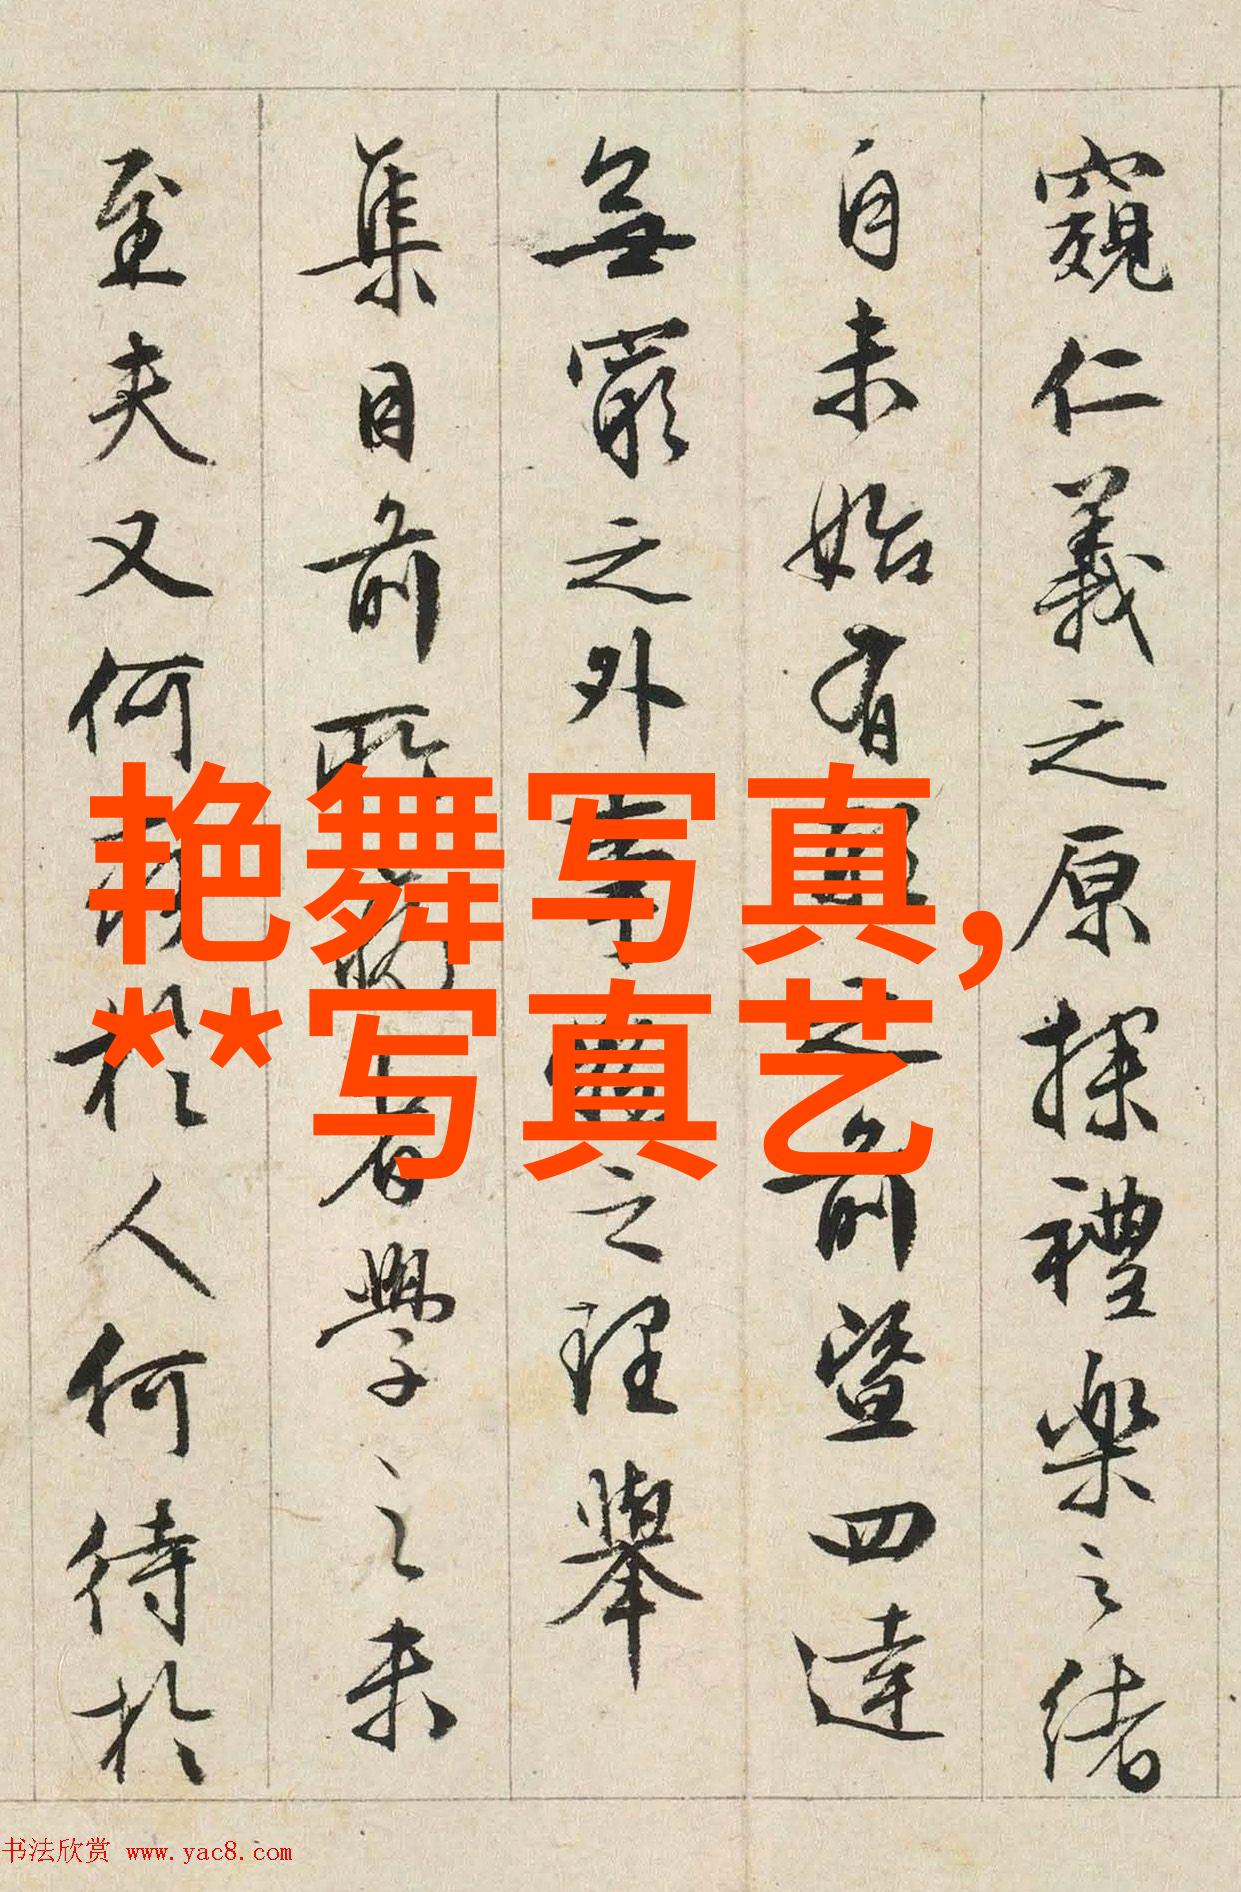 窺仁義之原探禮樂之緒
自未始有
之前暨四達
無窮之外
之理舉
集目前所
者學之未
至夫又何
於人何待於
艳舞写真,
**写真艺
书法欣赏 www.yac8.com